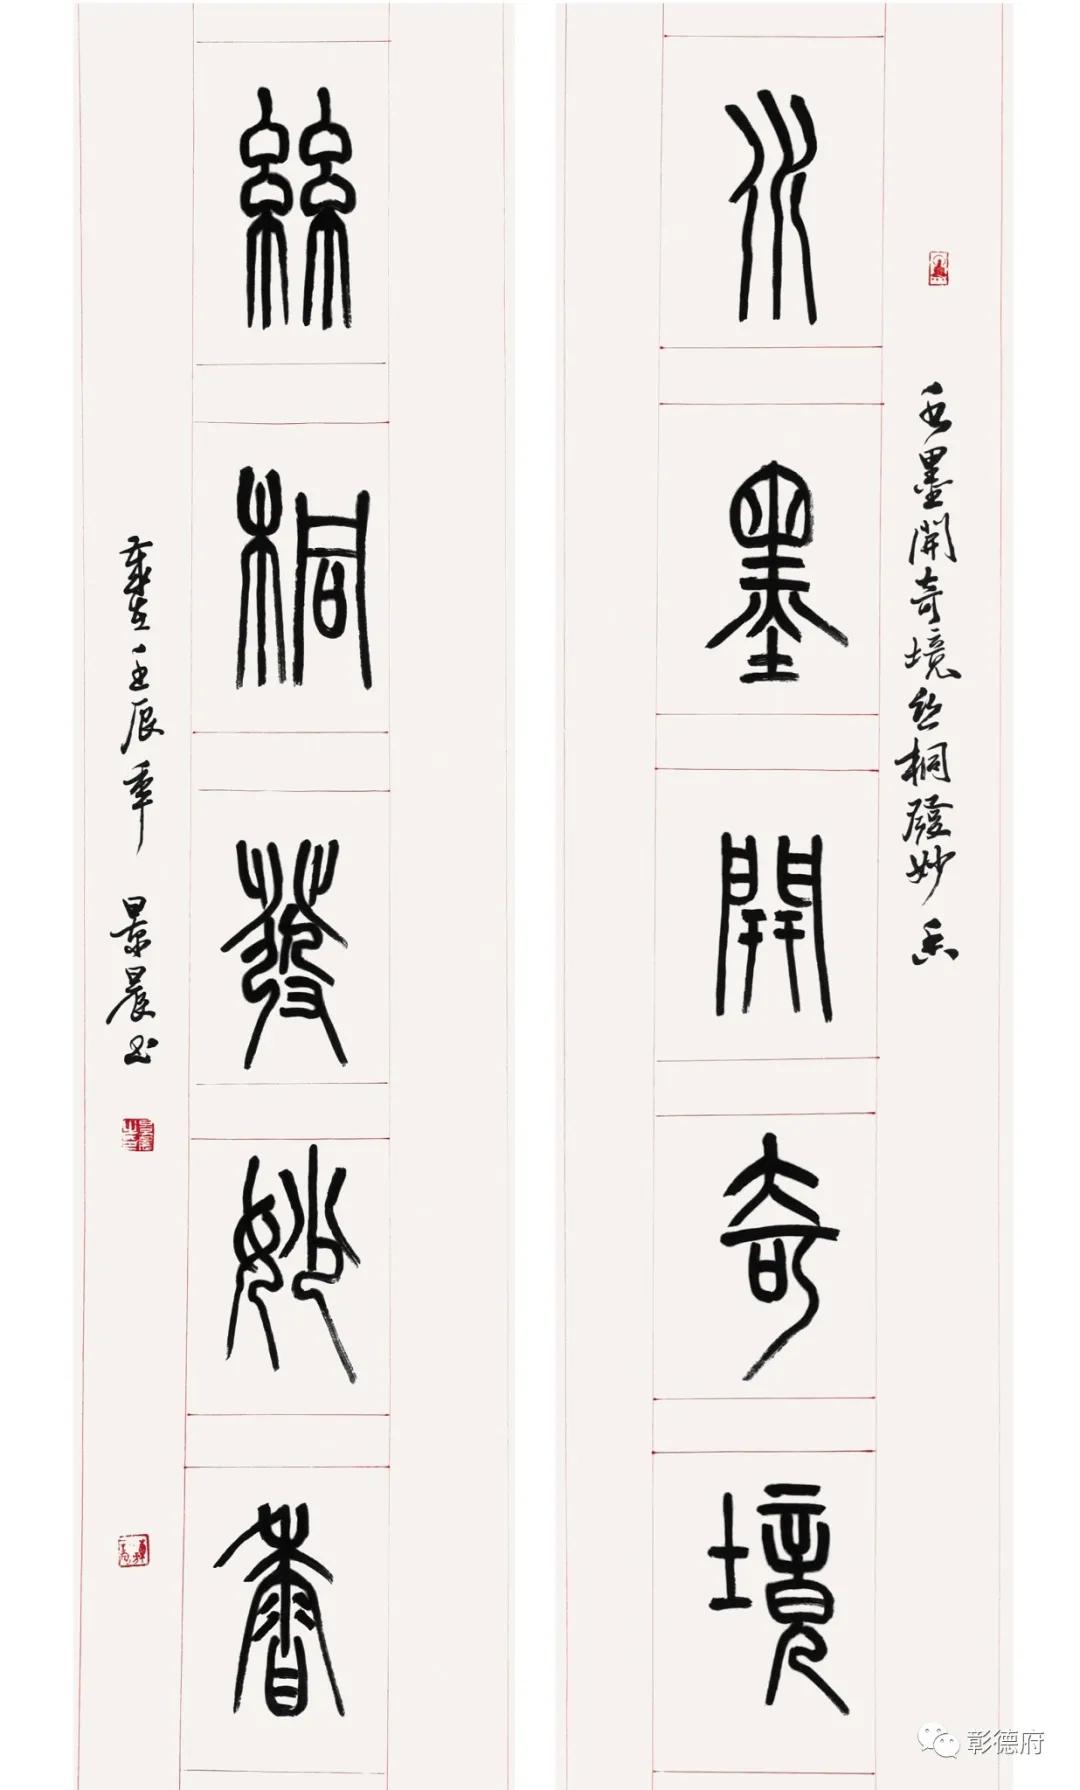 水墨開奇境丝桐發妙香
水墨開奇境
絲桐發妙香
歲在壬辰年 景晨书
彰德府